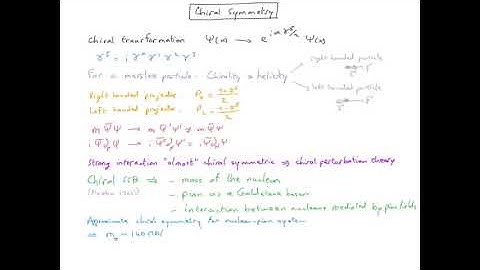 Chiral Symmetry
Chiral transformation ψ(x) → e^{iαγ⁵/2} ψ(x)
γ⁵ = i γ⁰ γ¹ γ² γ³
For a massless particle Chirality = helicity
right handed particle
left handed particle
Right handed projector P_R = (1+γ⁵)/2
Left handed projector P_L = (1-γ⁵)/2
m ψ̄ψ → m ψ̄'ψ' ≠ m ψ̄ψ
Strong interaction "almost" chiral symmetric ⇒ chiral perturbation theory
Chiral SSB ⇒ - mass of the nucleon
- pion as a Goldstone boson
- interaction between nucleons mediated by pion fields
Approximate chiral symmetry for nucleon-pion system